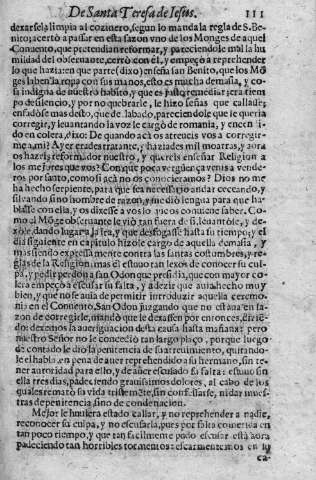 De Santa Teresa de Iesus. 111
dexarsela limpia al cozinero, segun lo manda la regla de S. Be-
nito; acertò a passar en esta sazon vno de los Monges de aquel
Conuento, que pretendian reformar, y pareciendole mal la hu
mildad del obseruante, cerrò con el, y empeçò a reprehender
lo que hazia: en que parte (dixo) enseña san Benito, que los Mō
ges laben la ropa con sus manos, esto es mucha demasia, y co-
sa indigna de nuestro habito, y que es justo remediar; era tiem
po de silencio, y por no quebrarle, le hizo señas que callasse;
enfadose mas desto, que de labado, pareciendole que le queria
corregir, y leuantando la voz le cargò de romania, y encen
do en colera, dixo: De quando acà os atreueis vos a corregir-
me a mi? Ayer erades tratante, y haziades mil moatras, y aora
os hazeis reformador nuestro, y quereis enseñar Religion a
los mejores que vos? Con que poca verguença venis a vende-
ros por santo, como si acà no os conocieramos? Dios no me
ha hecho serpiente, para que sea necessario andar ceceando, y
siluando sino hombre de razon, y me diò lengua para que ha-
blasse con ella, y os dixesse a vos lo que os conuiene saber. Co-
mo el Mōge obseruante le viò tan fuera de si, leuantòse, y de-
xòle, dando lugar a la ira, y que desfogasse hasta su tiempo; y el
dia siguiente en capitulo hizole cargo de aquella demasia, y
mas siendo expressamente contra las santas costumbres, y re-
glas de la Religion, mas èl estuuo tan lexos de conocer su cul-
pa, y pedir perdon a san Odon que presidia, que con mayor co
lera empeçò a escusar su falta, y a dezir que auia hecho muy
bien, y que no se auia de permitir introduzir aquella ceremo-
nia en el Conuento. San Odon juzgando que no estaua en sa-
zon de corregirle, mandò que le dexassen por entonces, dizié-
do: dexemos la aueriguacion desta causa hasta mañana: pero
nuestro Señor no le concediò tan largo plaço, porque luego
de contado le dio la penitencia de su atreuimiento, quitando-
le el habla, en pena de auer reprehendido a su hermano, sin te-
ner autoridad para ello, y de auer escusado su falta: estuuo sin
ella tres dias, padeciendo grauissimos dolores, al cabo de los
quales rematò su vida tristemēte, sin confessarse, ni dar mues-
tras de penitencia, sino de condenacion.
Mejor le huuiera estado callar, y no reprehender a nadie,
reconocer su culpa, y no escusarla, pues por falta cometida en
tan poco tiempo, y que tan facilmente pudo escusar està aora
padeciendo tan horribles tormentos: escarmentemos en su
ca-